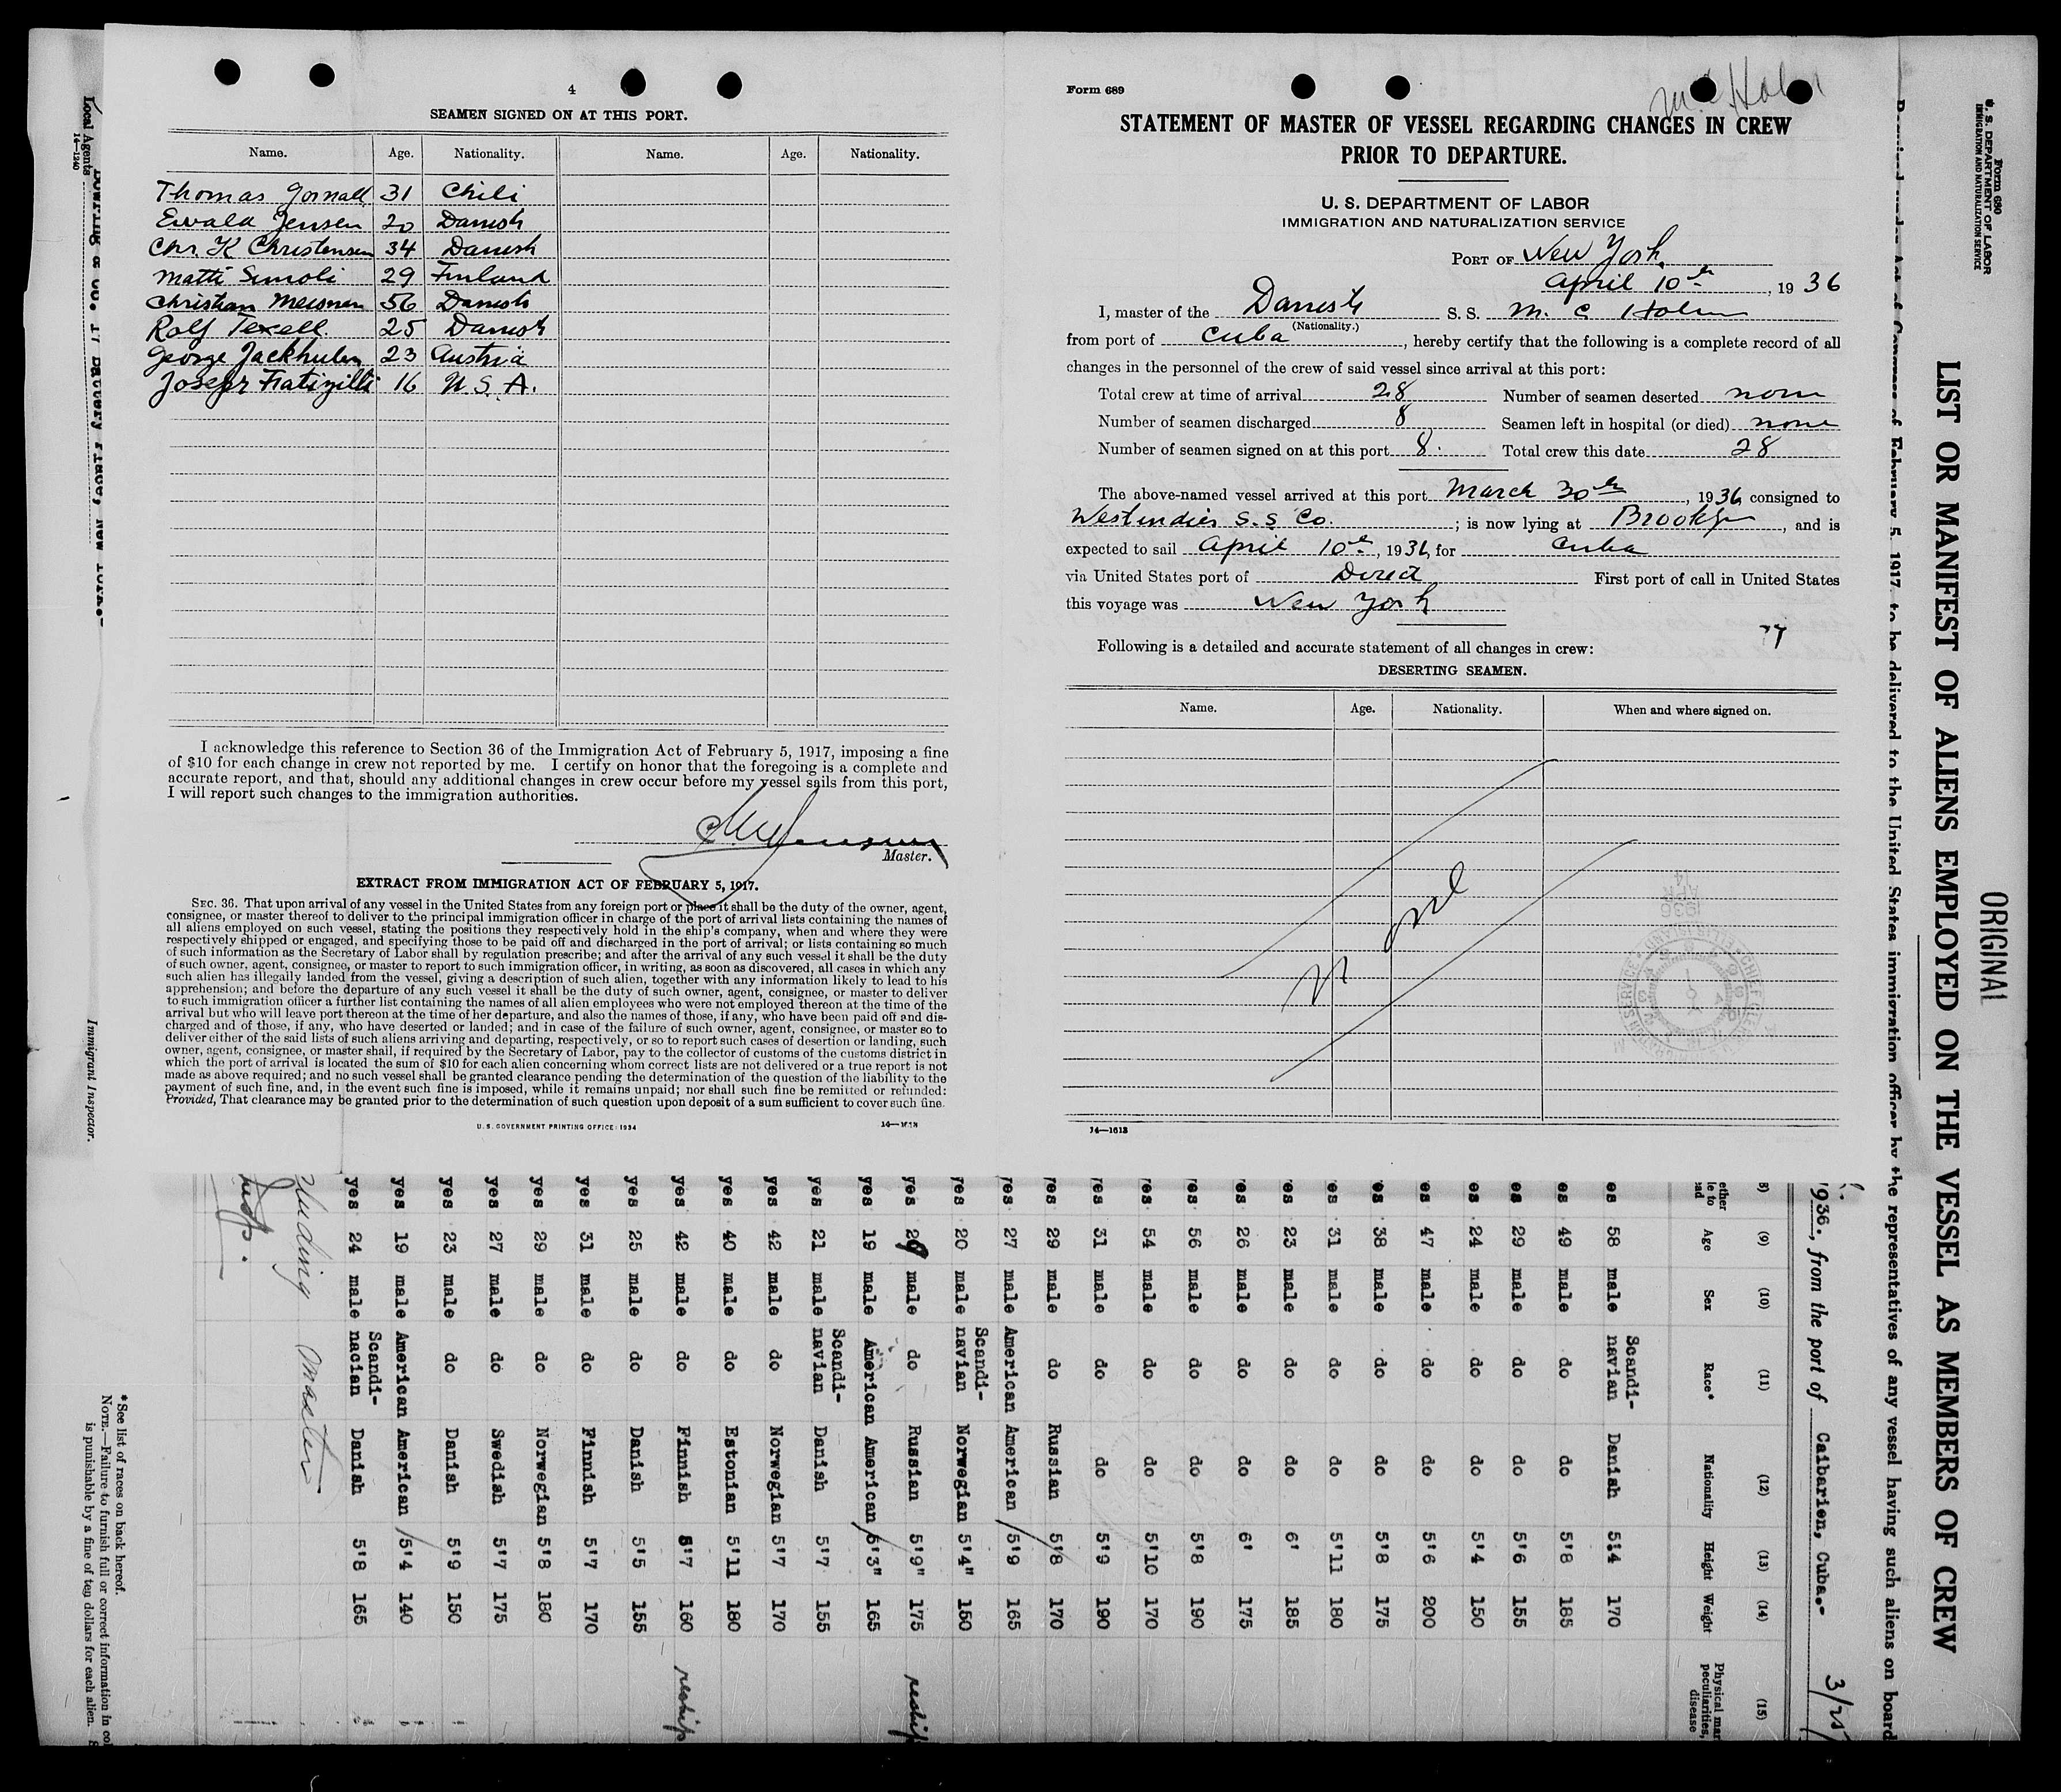 4
SEAMEN SIGNED ON AT THIS PORT.
Name. Age. Nationality. Name. Age. Nationality.
Thomas Gornall 31 Chili
Ewald Jensen 20 Danish
Chr. K Christensen 34 Danish
Matti Simoli 29 Finland
Christian 56 Danish
Rolf Texell. 25 Danish
George 23 Austria
Joseph 16 U.S.A.
I acknowledge this reference to Section 36 of the Immigration Act of February 5, 1917, imposing a fine
of $10 for each change in crew not reported by me. I certify on honor that the foregoing is a complete and
accurate report, and that, should any additional changes in crew occur before my vessel sails from this port,
I will report such changes to the immigration authorities.
Master.
EXTRACT FROM IMMIGRATION ACT OF FEBRUARY 5, 1917.
SEC. 36. That upon arrival of any vessel in the United States from any foreign port or place it shall be the duty of the owner, agent,
consignee, or master thereof to deliver to the principal immigration officer in charge of the port of arrival lists containing the names of
all aliens employed on such vessel, stating the positions they respectively hold in the ship's company, when and where they were
respectively shipped or engaged, and specifying those to be paid off and discharged in the port of arrival; or lists containing so much
of such information as the Secretary of Labor shall by regulation prescribe; and after the arrival of any such vessel it shall be the duty
of such owner, agent, consignee, or master to report to such immigration officer, in writing, as soon as discovered, all cases in which any
such alien has illegally landed from the vessel, giving a description of such alien, together with any information likely to lead to his
apprehension; and before the departure of any such vessel it shall be the duty of such owner, agent, consignee, or master to deliver
to such immigration officer a further list containing the names of all alien employees who were not employed thereon at the time of the
arrival but who will leave port thereon at the time of her departure, and also the names of those, if any, who have been paid off and dis-
charged and of those, if any, who have deserted or landed; and in case of the failure of such owner, agent, consignee, or master so to
deliver either of the said lists of such aliens arriving and departing, respectively, or so to report such cases of desertion or landing, such
owner, agent, consignee, or master shall, if required by the Secretary of Labor, pay to the collector of customs of the customs district in
which the port of arrival is located the sum of $10 for each alien concerning whom correct lists are not delivered or a true report is not
made as above required; and no such vessel shall be granted clearance pending the determination of the question of the liability to the
payment of such fine, and, in the event such fine is imposed, while it remains unpaid; nor shall such fine be remitted or refunded:
Provided, That clearance may be granted prior to the determination of such question upon deposit of a sum sufficient to cover such fine.
U. S. GOVERNMENT PRINTING OFFICE: 1934 14—1613
Form 689
M. C. Holm
STATEMENT OF MASTER OF VESSEL REGARDING CHANGES IN CREW
PRIOR TO DEPARTURE.
U. S. DEPARTMENT OF LABOR
IMMIGRATION AND NATURALIZATION SERVICE
PORT OF New York.
April 10th, 1936
I, master of the Danish S. S. M. C Holm
(Nationality.)
from port of Cuba, hereby certify that the following is a complete record of all
changes in the personnel of the crew of said vessel since arrival at this port:
Total crew at time of arrival 28 Number of seamen deserted none
Number of seamen discharged 8 Seamen left in hospital (or died) none
Number of seamen signed on at this port 8. Total crew this date 28
The above-named vessel arrived at this port March 30th, 1936 consigned to
Westindies S.S Co. ; is now lying at Brooklyn, and is
expected to sail April 10th, 1936, for Cuba
via United States port of Direct First port of call in United States
this voyage was New York
77
Following is a detailed and accurate statement of all changes in crew:
DESERTING SEAMEN.
Name. Age. Nationality. When and where signed on.
None
14—1613
Form 680
U. S. DEPARTMENT OF LABOR
IMMIGRATION AND NATURALIZATION SERVICE
ORIGINAL
LIST OR MANIFEST OF ALIENS EMPLOYED ON THE VESSEL AS MEMBERS OF CREW
Required under Act of Congress of February 5, 1917, to be delivered to the United States immigration officer by the representatives of any vessel having such aliens on board
1936., from the port of Caibarien, Cuba.-
(9) (10) (11) (12) (13) (14) (15)
Age Sex Race* Nationality Height Weight Physical mar
peculiarities,
disease
es 58 male Scandi-navian Danish 5'4 170
es 49 male do do 5'8 185
es 29 male do do 5'6 155
es 24 male do do 5'4 150
es 47 male do do 5'6 200
es 38 male do do 5'8 175
es 31 male do do 5'11 180
es 23 male do do 6' 185
es 26 male do do 6' 175
es 56 male do do 5'8 190
es 54 male do do 5'10 170
es 31 male do do 5'9 190
es 29 male do Russian 5'8 170
yes 27 male American American 5'9 165
yes 20 male Scandi-navian Norwegian 5'4" 150
yes 29 male do Russian 5'9" 175 reship
yes 19 male American American 5'3" 165
yes 21 male Scandi-navian Danish 5'7 155
yes 42 male do Norwegian 5'7 170
yes 40 male do Estonian 5'11 180
yes 42 male do Finnish 5'7 160 reship
yes 25 male do Danish 5'5 155
yes 31 male do Finnish 5'7 170
yes 29 male do Norwegian 5'8 180
yes 27 male do Swedish 5'7 175
yes 23 male do Danish 5'9 150
yes 19 male American American 5'4 140
yes 24 male Scandi-nacian Danish 5'8 165
cluding master
*See list of races on back hereof.
NOTE.—Failure to furnish full or correct information in co
is punishable by a fine of ten dollars for each alien.
Local Agents
14—1240
Bowring & Co. 17 Battery Place, New York.-
Immigrant Inspector.